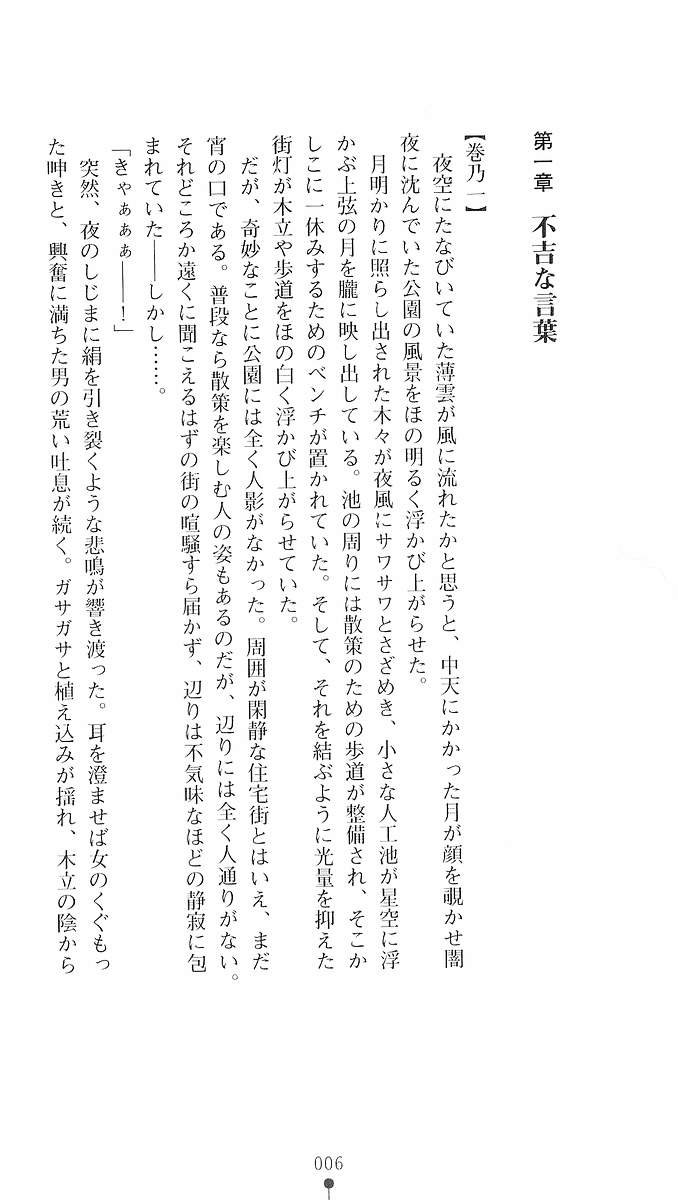 第一章　不吉な言葉
【巻乃一】
　夜空にたなびいていた薄雲が風に流れたかと思うと、中天にかかった月が顔を覗かせ闇
夜に沈んでいた公園の風景をほの明るく浮かび上がらせた。
　月明かりに照らし出された木々が夜風にサワサワとさざめき、小さな人工池が星空に浮
かぶ上弦の月を朧に映し出している。池の周りには散策のための歩道が整備され、そこか
しこに一休みするためのベンチが置かれていた。そして、それを結ぶように光量を抑えた
街灯が木立や歩道をほの白く浮かび上がらせていた。
　だが、奇妙なことに公園には全く人影がなかった。周囲が閑静な住宅街とはいえ、まだ
宵の口である。普段なら散策を楽しむ人の姿もあるのだが、辺りには全く人通りがない。
それどころか遠くに聞こえるはずの街の喧騒すら届かず、辺りは不気味なほどの静寂に包
まれていた――しかし……。
「きゃぁぁぁ――！」
　突然、夜のしじまに絹を引き裂くような悲鳴が響き渡った。耳を澄ませば女のくぐもっ
た呻きと、興奮に満ちた男の荒い吐息が続く。ガサガサと植え込みが揺れ、木立の陰から
006